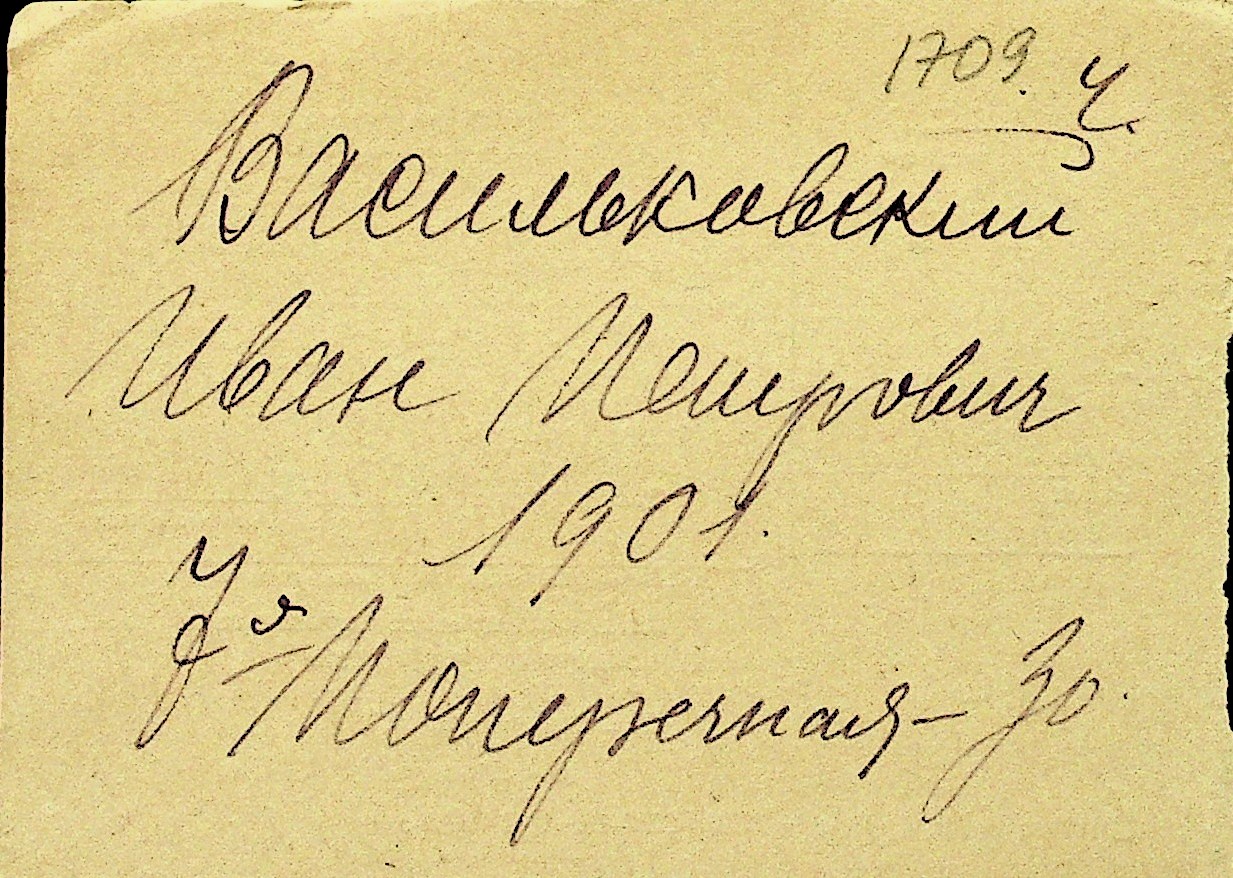 1709. Ч.
Васильковский
Иван Петрович
1901.
7я Поперечная – 30.